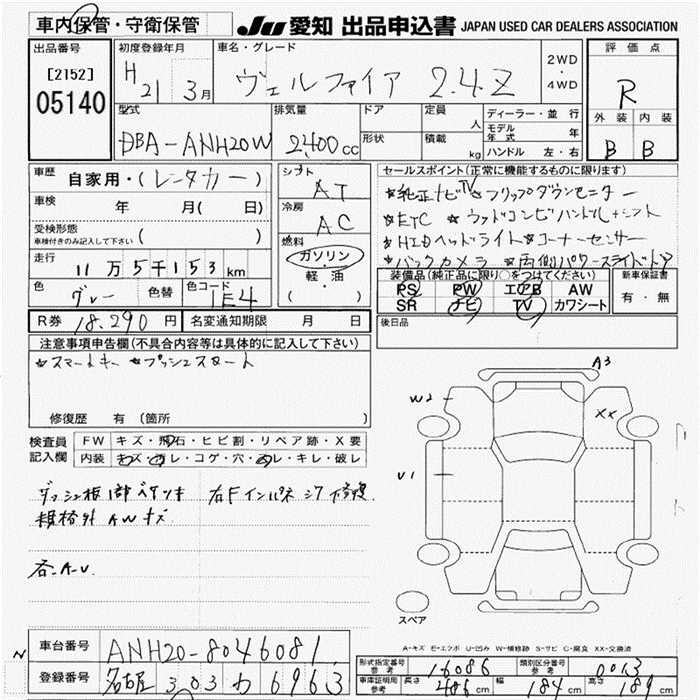 車内保管・守衛保管 JU 愛知 出品申込書 JAPAN USED CAR DEALERS ASSOCIATION
出品番号 [2152] 05140
初度登録年月 H21 3月
車名・グレード ヴェルファイア 2.4Z
2WD・4WD
評価点 R
型式 DBA-ANH20W
排気量 2400cc
ドア 形状
定員 人 積載 kg
ディーラー・並行
モデル年式 年
ハンドル 左・右
外装 B 内装 B
車歴 自家用・(レンタカー)
車検 年 月( 日)
受検形態 ( )
車検付きのみ記入して下さい
走行 11万5千153km
色 グレー 色替 色コード 1E4
シフト AT
冷房 AC
燃料 ガソリン・軽油 ( )
セールスポイント(正常に機能するものに限ります)
☆純正ナビTV☆フリップダウンモニター
☆ETC ☆ウッドコンビハンドル+シフト
☆HIDヘッドライト☆コーナーセンサー
☆バックカメラ ☆両側パワースライドドア
装備品(純正品に限り○をつけてください) 新車保証書
PS PW エアB AW 有・無
SR ナビ TV カワシート
R券 18,290円 名変通知期限 月 日
後日品
注意事項申告欄(不具合内容等は具体的に記入して下さい)
☆スマートキー ☆プッシュスタート
修復歴 有(箇所 )
検査員記入欄
FW キズ・飛石・ヒビ割・リペア跡・X要
内装 キズ・ヨゴレ・コゲ・穴・ヌレ・キレ・破レ
ダッシュ板1部ペイント 右Fインパネ シワ 修復
規格外 AWキズ
各A-U
A3
W2
XX
U1
スペア
A-キズ E-エクボ U-凹み W-補修跡 S-サビ C-腐食 XX-交換済
車台番号 ANH20-8046081
登録番号 名古屋 303 わ 6963
形式指定番号 参考 16086 類別区分番号 参考 0013
車庫証明用 参考 長さ 486cm 幅 184cm 高さ 189cm
N